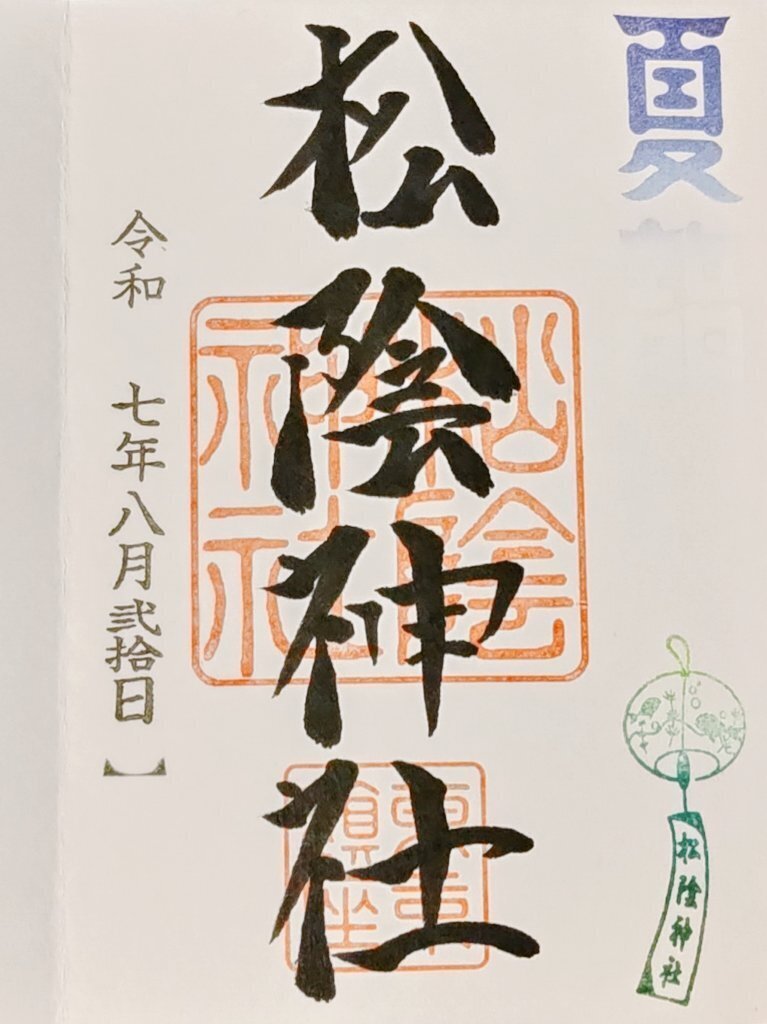 夏
松陰神社
松陰神社
東京鎮坐
松陰神社
令和 七年八月弐拾日